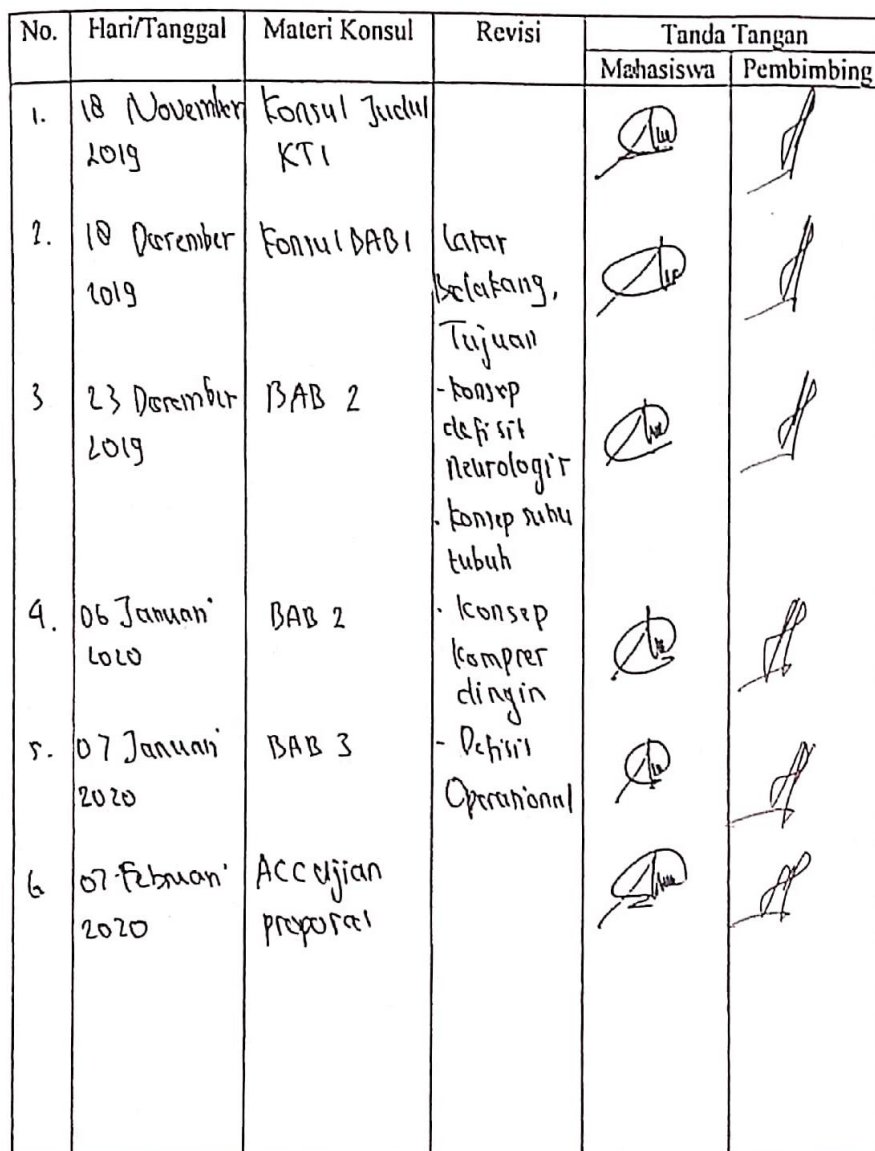 No. Hari/Tanggal Materi Konsul Revisi Tanda Tangan
Mahasiswa Pembimbing
1. 18 November Konsul Judul
2019 KTI
2. 18 Desember Konsul BAB 1 Latar
2019 Belakang,
Tujuan
3 23 Desember BAB 2 - Konsep
2019 defisit
neurologis
- Konsep suhu
tubuh
4. 06 Januari BAB 2 - Konsep
2020 Kompres
dingin
5. 07 Januari BAB 3 - Defisit
2020 Operasional
6 07 Februari ACC Ujian
2020 proposal